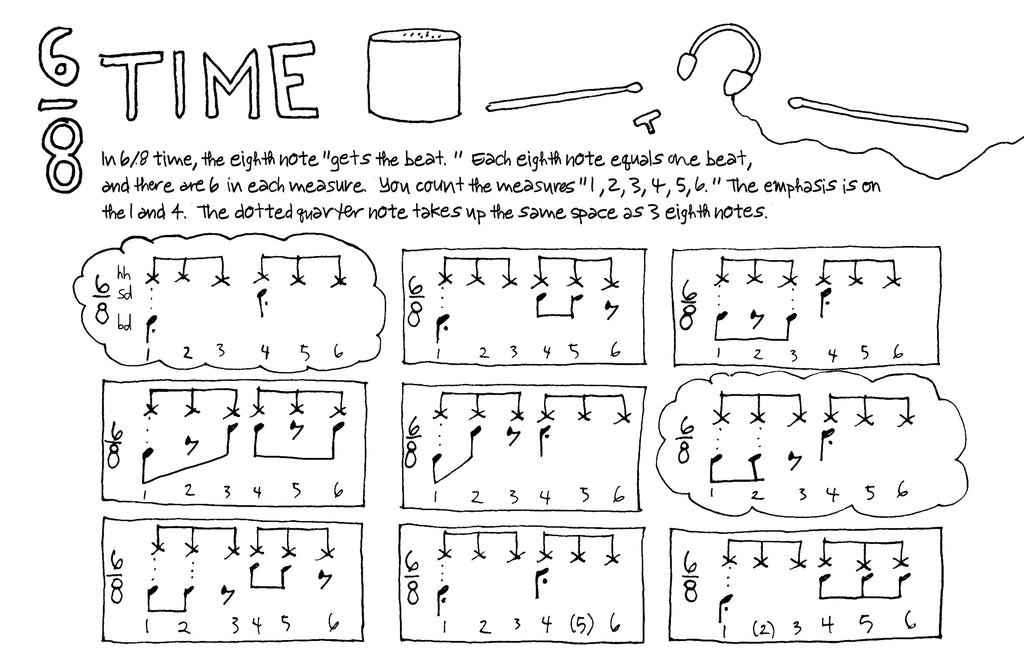 6/8 TIME
In 6/8 time, the eighth note "gets the beat." Each eighth note equals one beat,
and there are 6 in each measure. You count the measures "1, 2, 3, 4, 5, 6." The emphasis is on
the 1 and 4. The dotted quarter note takes up the same space as 3 eighth notes.
6/8 hh sd bd
1 2 3 4 5 6
6/8
1 2 3 4 5 6
6/8
1 2 3 4 5 6
6/8
1 2 3 4 5 6
6/8
1 2 3 4 5 6
6/8
1 2 3 4 5 6
6/8
1 2 3 4 5 6
6/8
1 2 3 4 (5) 6
6/8
1 (2) 3 4 5 6